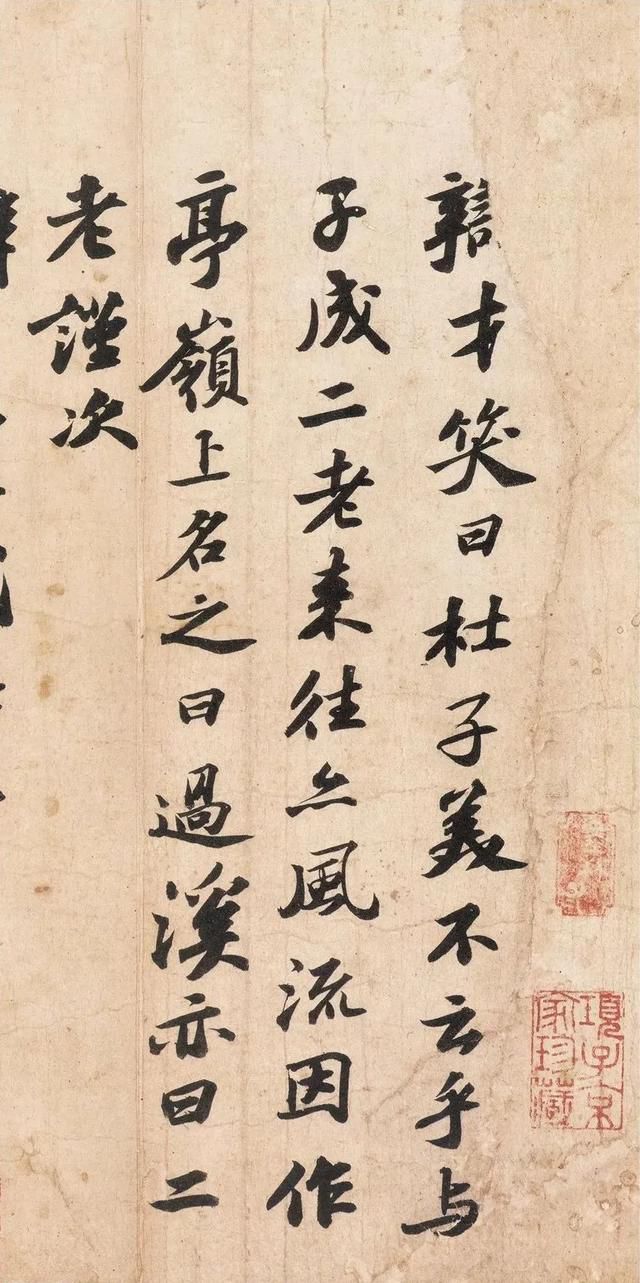 辯才笑曰杜子美不云乎与
子成二老来往亦風流因作
亭嶺上名之曰過溪亦曰二
老謹次
辯
項子京
家珍藏